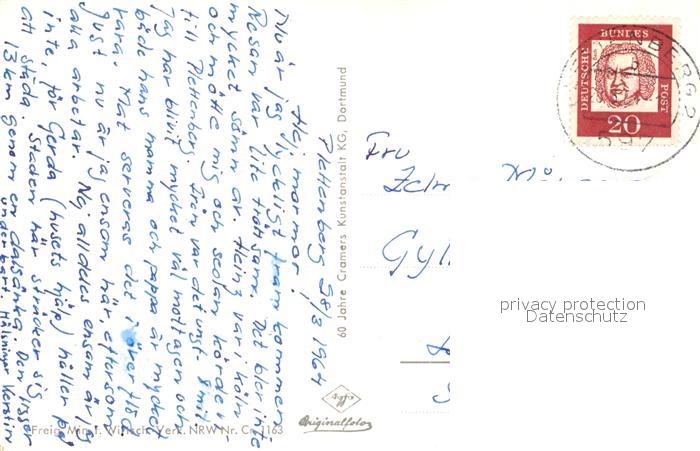 Plettenberg 28/3 1964
Hej, mormor!
Nu är jag lyckligt framkommen.
Resan var lite tröttsam. Det blir inte
mycket sömn av. Heinz var i Köln
och mötte mig och sedan körde vi
till Plettenberg. Där var det
Jag har blivit mycket väl mottagen och
både hans mamma och pappa är mycket
rara. Mat serveras det i överflöd.
Just nu är jag ensam här, eftersom
alla arbetar. Nej, alldeles ensam är jag
inte, för Gerda (husets hjälp) håller på
att städa. Staden här sträcker sig
13 km genom en dalsänka. Den ligger
underbart. Hälsningar Kerstin
60 Jahre Cramers Kunstanstalt KG, Dortmund
Freig. Min. f. Wirtsch. Verk. NRW Nr. Co 1163
Originalfoto
DEUTSCHE BUNDESPOST
20
Fru
privacy protection
Datenschutz